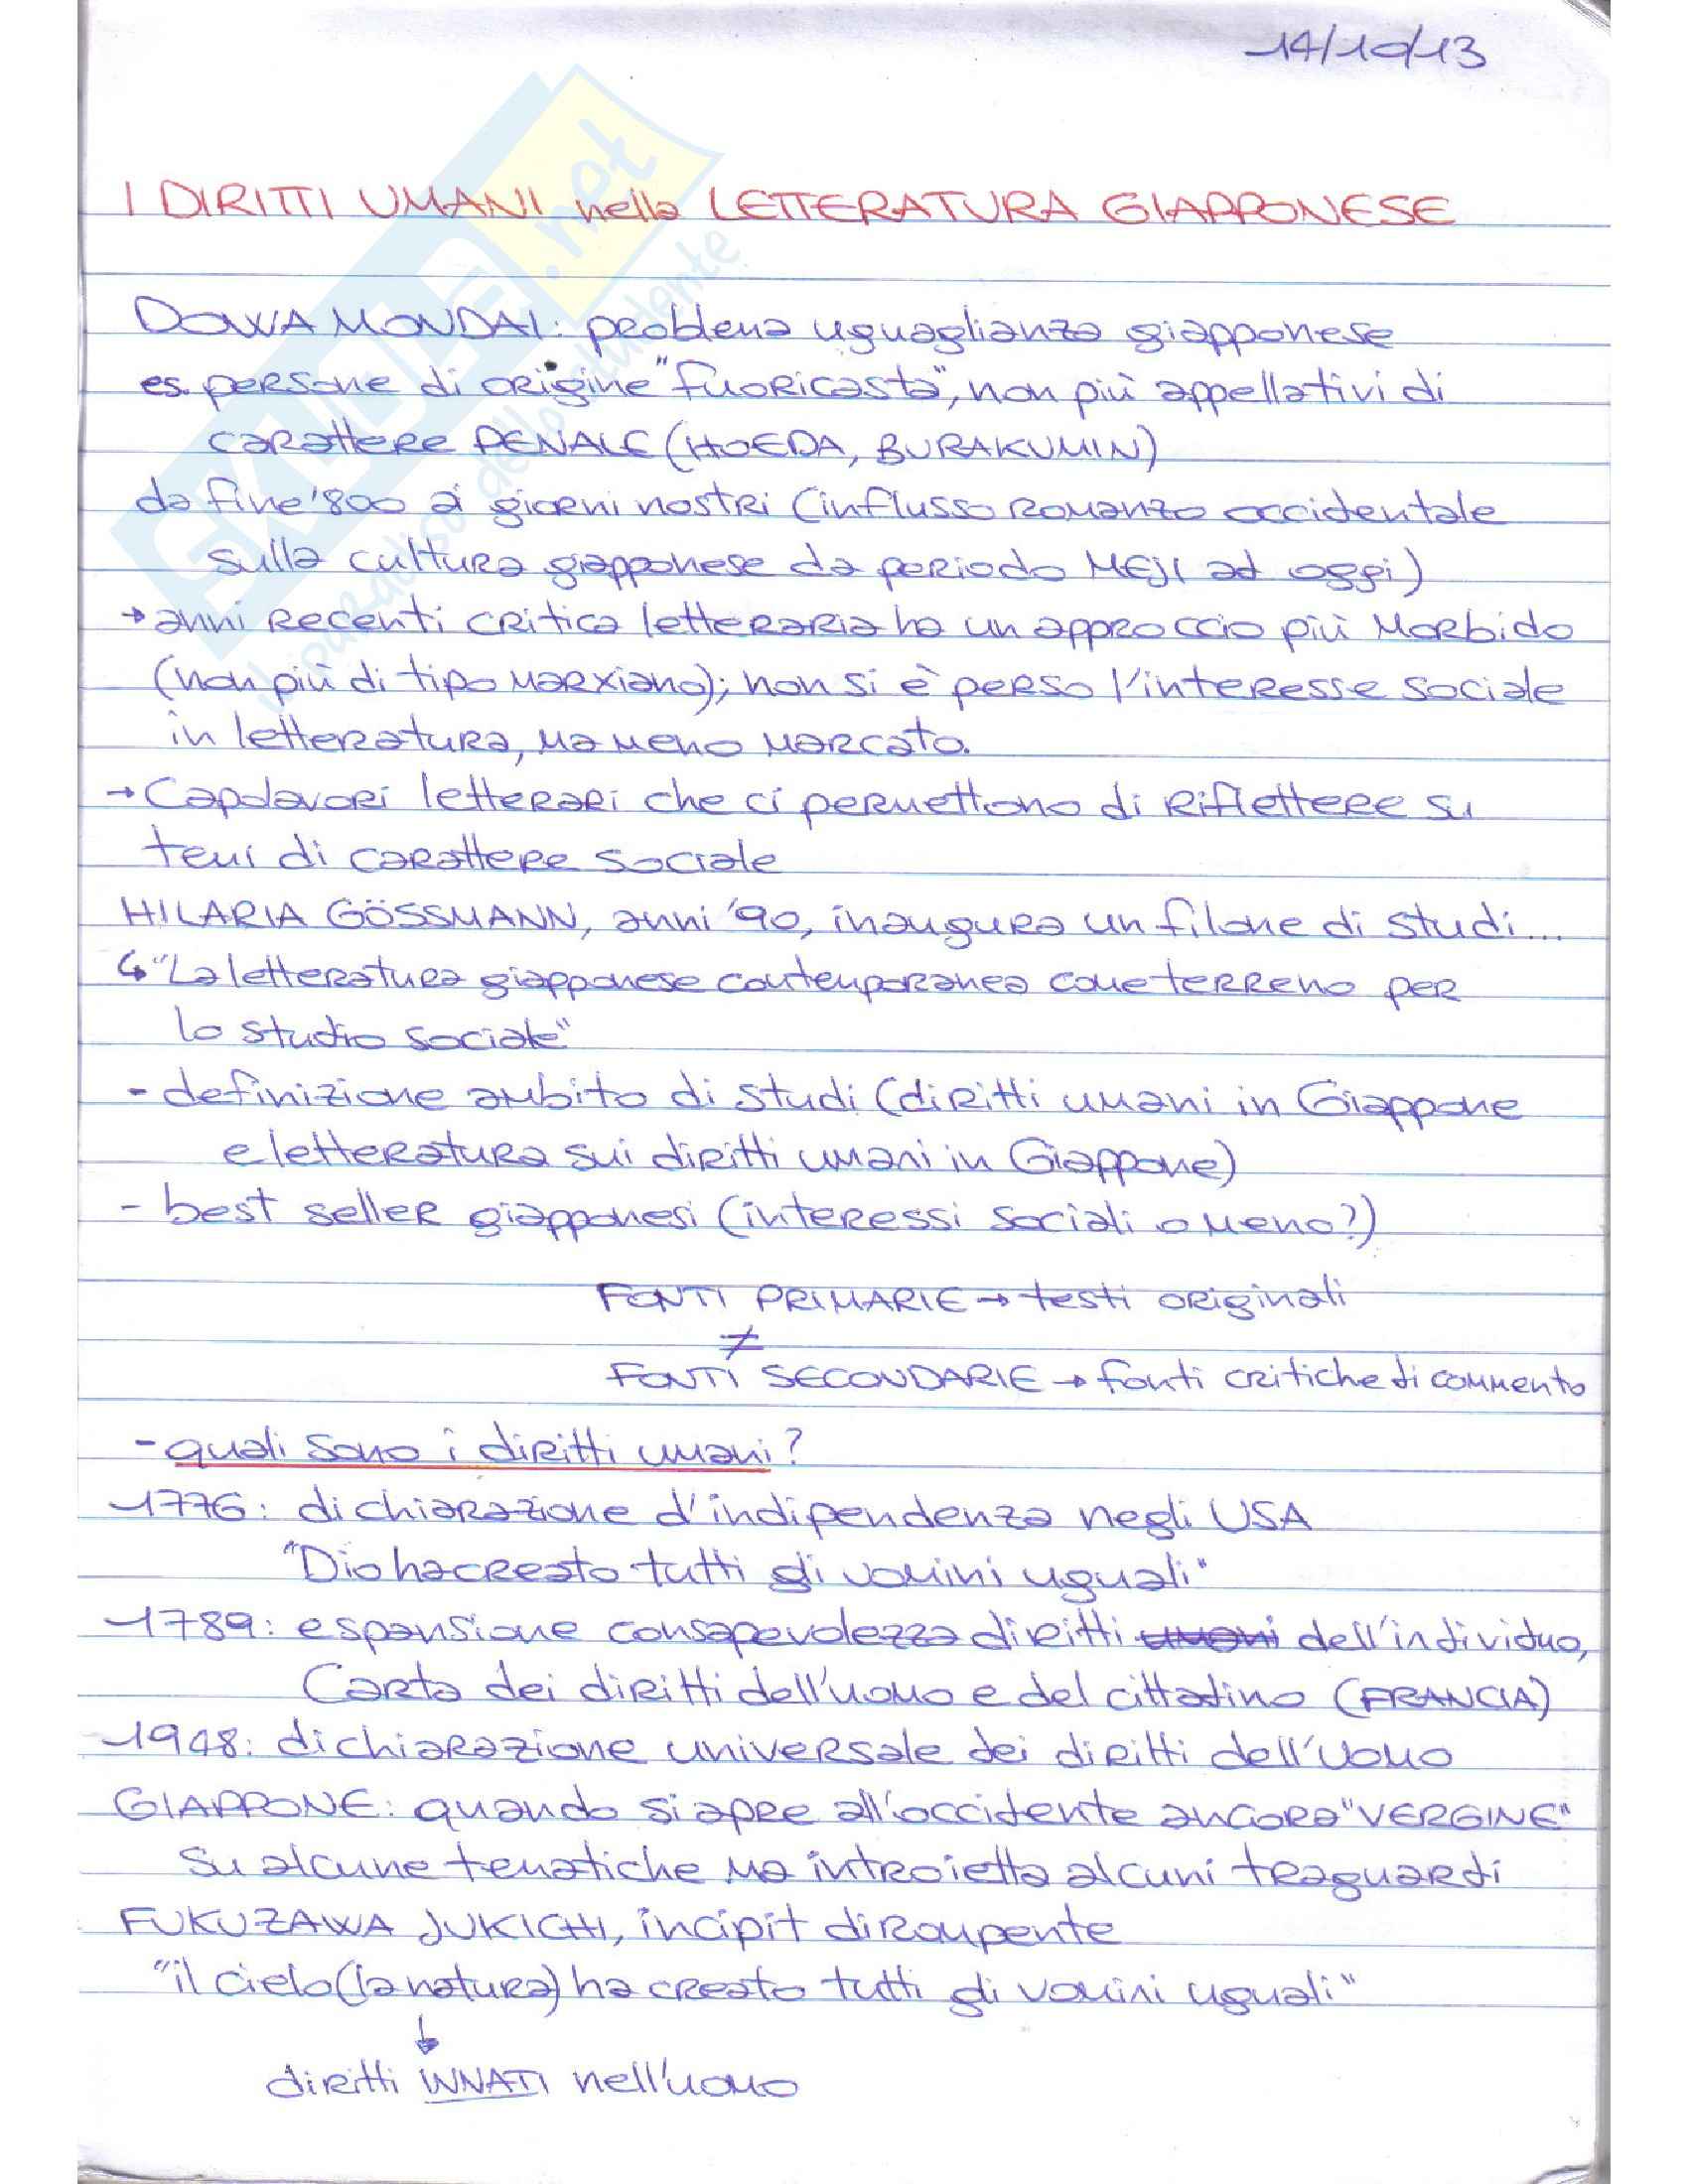 14/10/13
I DIRITTI UMANI nella LETTERATURA GIAPPONESE
DOWA MONDAI: problema uguaglianza giapponese
es. persone di origine "fuoricasta", non più appellativi di
carattere PENALE (HOEDA, BURAKUMIN)
da fine '800 ai giorni nostri (influsso romanzo occidentale
sulla cultura giapponese da periodo MEJI ad oggi)
→ anni recenti critica letteraria ha un approccio più morbido
(non più di tipo marxiano); non si è perso l'interesse sociale
in letteratura, ma meno marcato.
→ Capolavori letterari che ci permettono di riflettere su
temi di carattere sociale
HILARIA GÖSSMANN, anni '90, inaugura un filone di studi...
↳ "La letteratura giapponese contemporanea come terreno per
lo studio sociale"
- definizione ambito di studi (diritti umani in Giappone
e letteratura sui diritti umani in Giappone)
- best seller giapponesi (interessi sociali o meno?)
FONTI PRIMARIE → testi originali
≠
FONTI SECONDARIE → fonti critiche di commento
- quali sono i diritti umani?
1776: dichiarazione d'indipendenza negli USA
"Dio ha creato tutti gli uomini uguali"
1789: espansione consapevolezza diritti umani dell'individuo,
Carta dei diritti dell'uomo e del cittadino (FRANCIA)
1948: dichiarazione universale dei diritti dell'uomo
GIAPPONE: quando si apre all'occidente ancora "VERGINE"
su alcune tematiche ma introietta alcuni traguardi
FUKUZAWA JUKICHI, incipit dirompente
"il cielo (la natura) ha creato tutti gli uomini uguali"
↓
diritti INNATI nell'uomo
SKUOLA.net
il paradiso dello studente